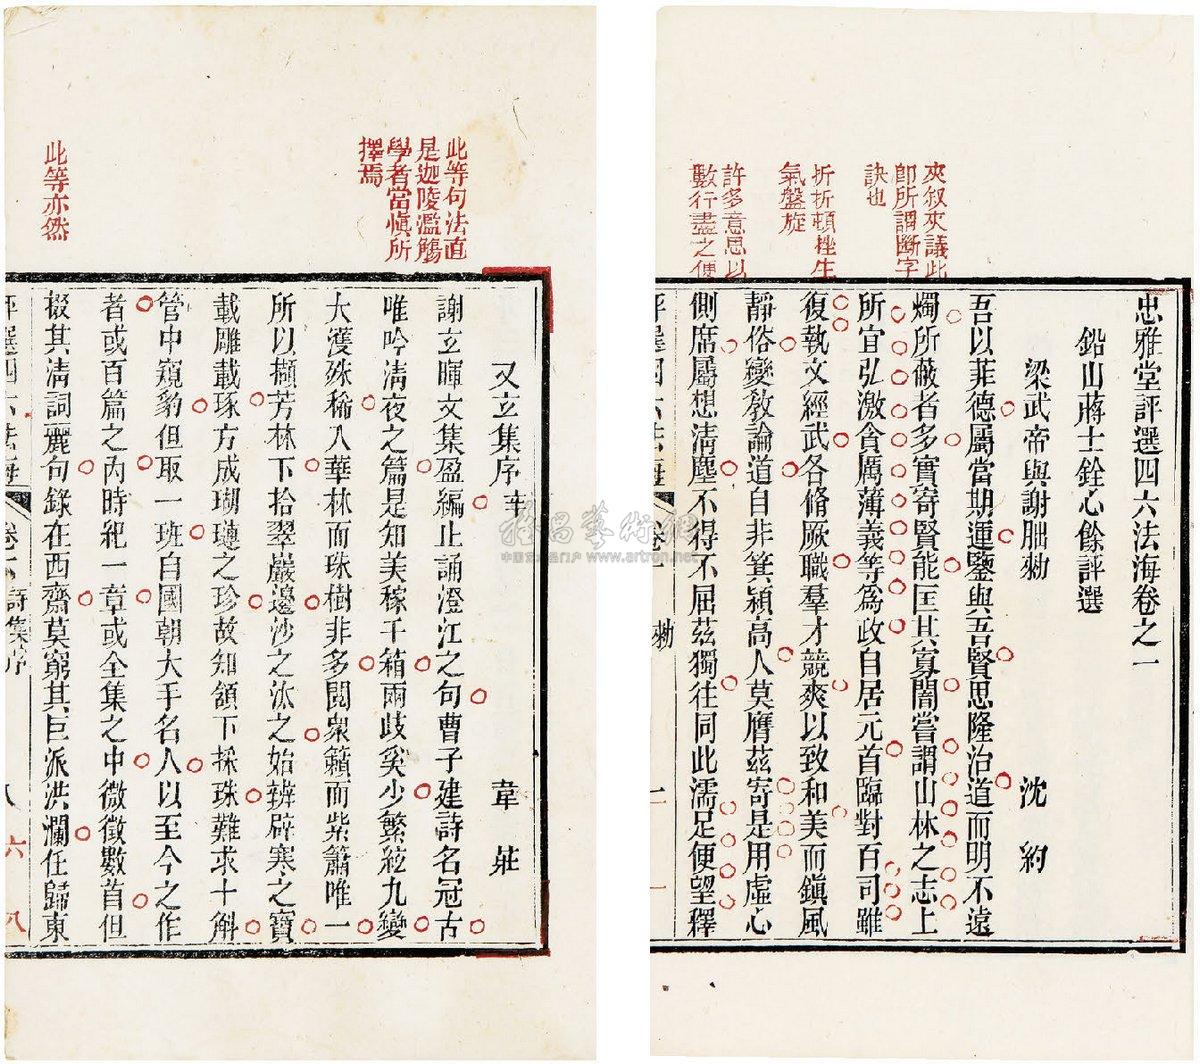 忠雅堂評選四六法海卷之一
鉛山蔣士銓心餘評選
梁武帝與謝朏勑 沈約
吾以菲德屬當期運鑒與吾賢思隆治道而明不遠
燭所蔽者多實寄賢能匡其寡闇嘗謂山林之志上
所宜弘激貪厲薄義等爲政自居元首臨對百司雖
復執文經武各脩厥職羣才競爽以致和美而鎭風
靜俗變敎論道自非箕潁高人莫膺茲寄是用虛心
側席屬想淸塵不得不屈茲獨往同此濡足便望釋
夾叙夾議此
卽所謂斷字
訣也
折折頓挫生
氣盤旋
許多意思以
數行盡之便
評選四六法海
卷一 勑
一
一
又玄集序
韋莊
謝玄暉文集盈編止誦澄江之句曹子建詩名冠古
唯吟淸夜之篇是知美稼千箱兩歧奚少繁絃九變
大濩殊稀入華林而珠樹非多閱衆籟而紫簫唯一
所以擷芳林下拾翠巖邊沙之汰之始辨辟寒之寶
載雕載琢方成瑚璉之珍故知頷下採珠難求十斛
管中窺豹但取一斑自國朝大手名人以至今之作
者或百篇之內時紀一章或全集之中微徵數首但
掇其淸詞麗句錄在西齋莫窮其巨派洪瀾任歸東
此等句法直
是迦陵濫觴
學者當愼所
擇焉
此等亦然
評選四六法海
詩集序
八
六
八
中国艺术品门户 www.artron.net